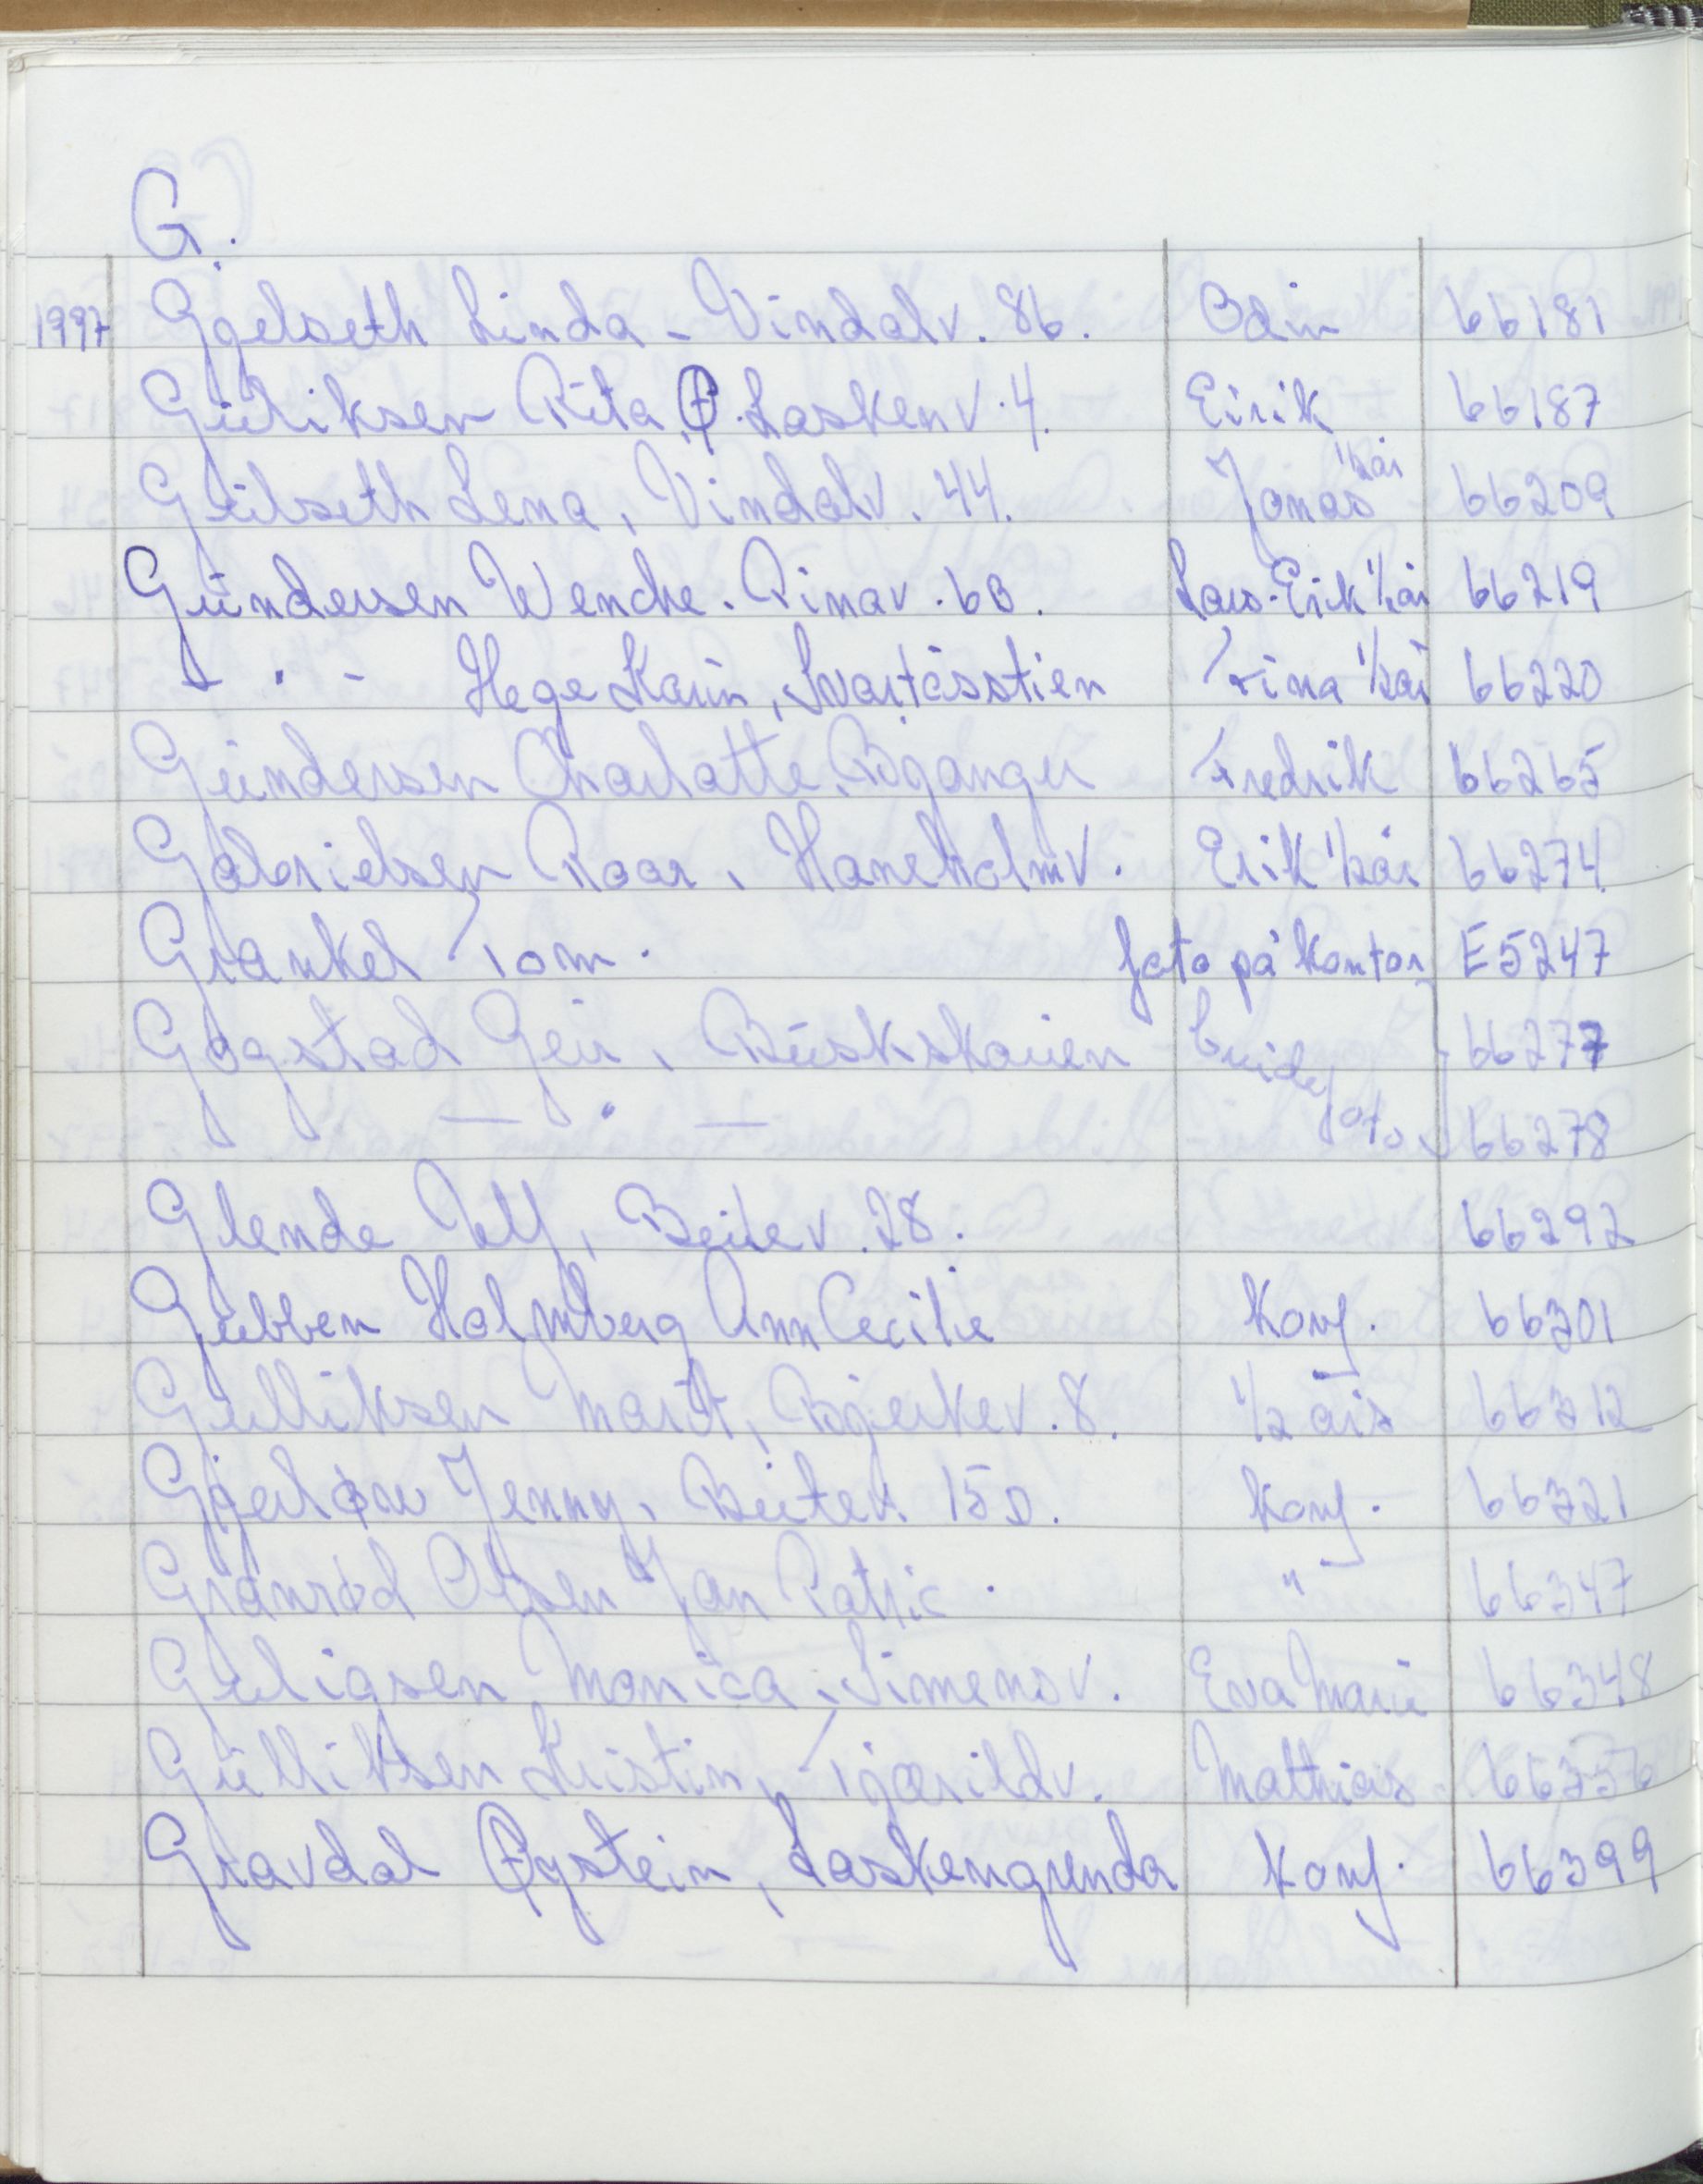 G.
1997 Gjelseth Linda - Vindalv. 86. Odin 66181
Guliksen Rita, Ø. Laskenv. 4. Eirik 66187
Gulseth Lena, Vindalv. 44. Jonas 1/2 år 66209
Gundersen Wenche. Rimav. 6B. Lars-Erik 1/2 år 66219
- " - Hege Karin, Svartåsstien Trina 1/2 år 66220
Gundersen Charlotte, Bjganger Fredrik 66265
Gabrielsen Roar, Haneholmv. Erik 1/2 år 66274
Grankel Tom. foto på kontor E5247
Gogstad Geir, Buskskauen brude 66277
— " — foto 66278
Glende Ulf, Beitev. 28. 66292
Gubben Holmberg Ann Cecilie Konf. 66301
Gulliksen Marit, Bjerkev. 8. 1/2 års 66312
Gjerløw Jenny, Beitev. 15D. Konf. 66321
Granrød Olsen Jan Patric. " 66347
Guligsen Monica, Simensv. Eva Marie 66348
Gulliksen Kristin, Tjærildv. Mathias 66356
Gravdal Øystein, Laskengrenda Konf. 66399